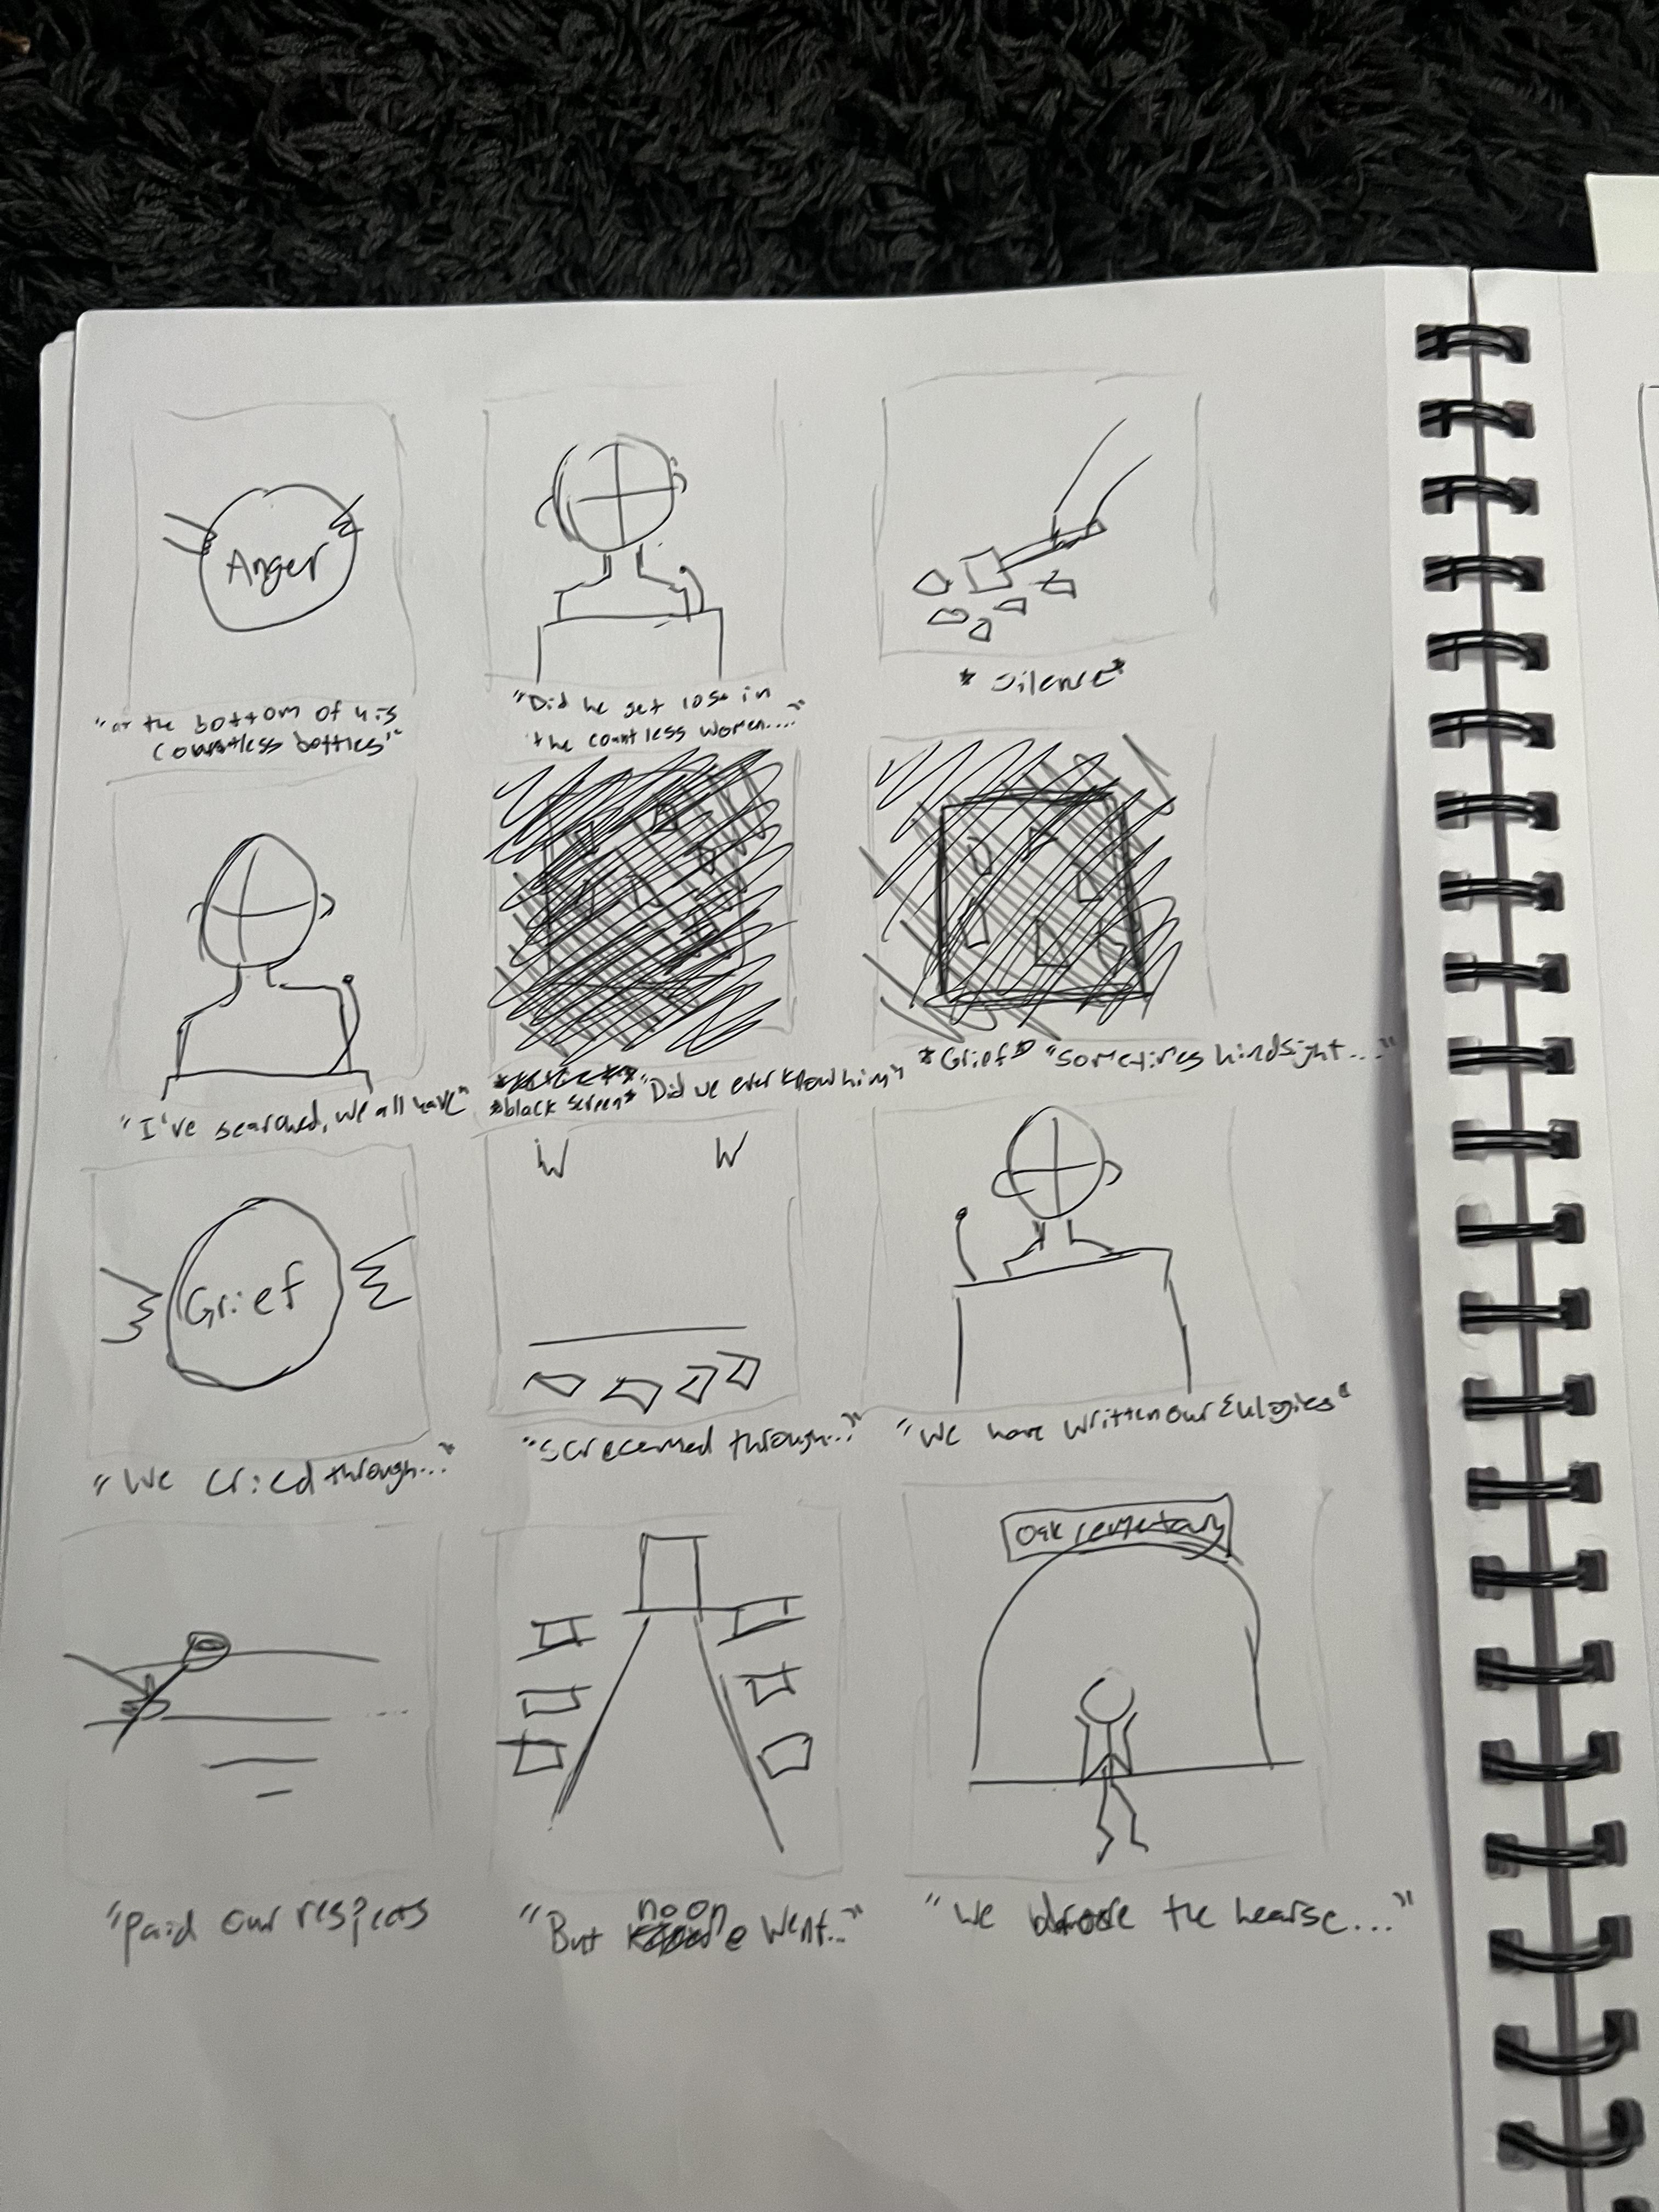 Anger
"or the bottom of his
countless bottles"
"Did he get lost in
the countless women...."
*Silence*
"I've searched, we all have"
*black screen* "Did we ever know him"
*Grief* "Sometimes hindsight..."
Grief
"We cried through..."
W W
"Screamed through..."
"We have written our Eulogies"
"Paid our respects
"But no one went..."
Oak cemetary
"We drove the hearse..."